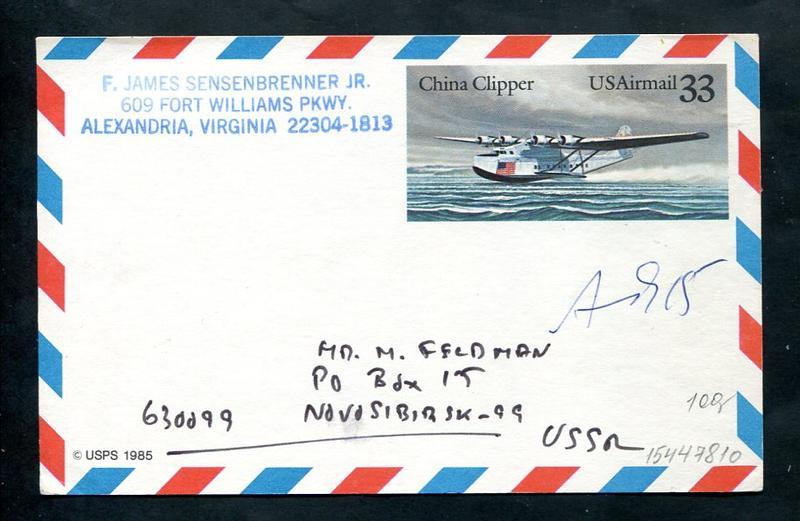 F. JAMES SENSENBRENNER JR.
609 FORT WILLIAMS PKWY.
ALEXANDRIA, VIRGINIA 22304-1813
China Clipper USAirmail 33
MR. M. FELDMAN
PO Box 15
NOVOSIBIRSK-99
630099
USSR
© USPS 1985
15447810